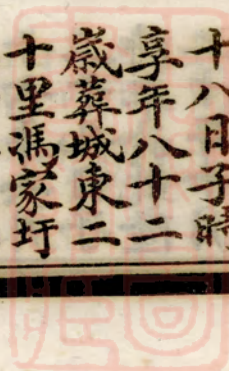 十八日子時
享年八十二
歲葬城東二
十里馮家圩